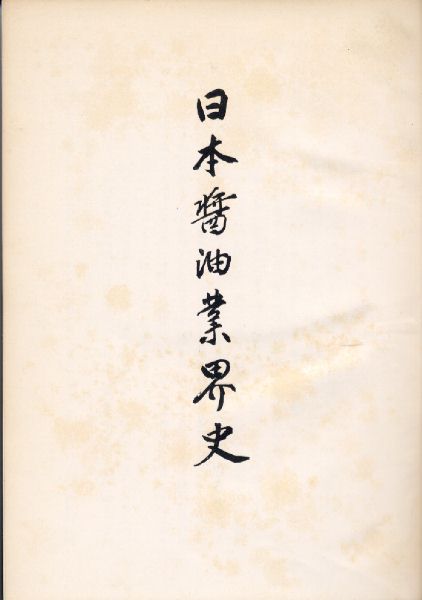 日本醤油業界史